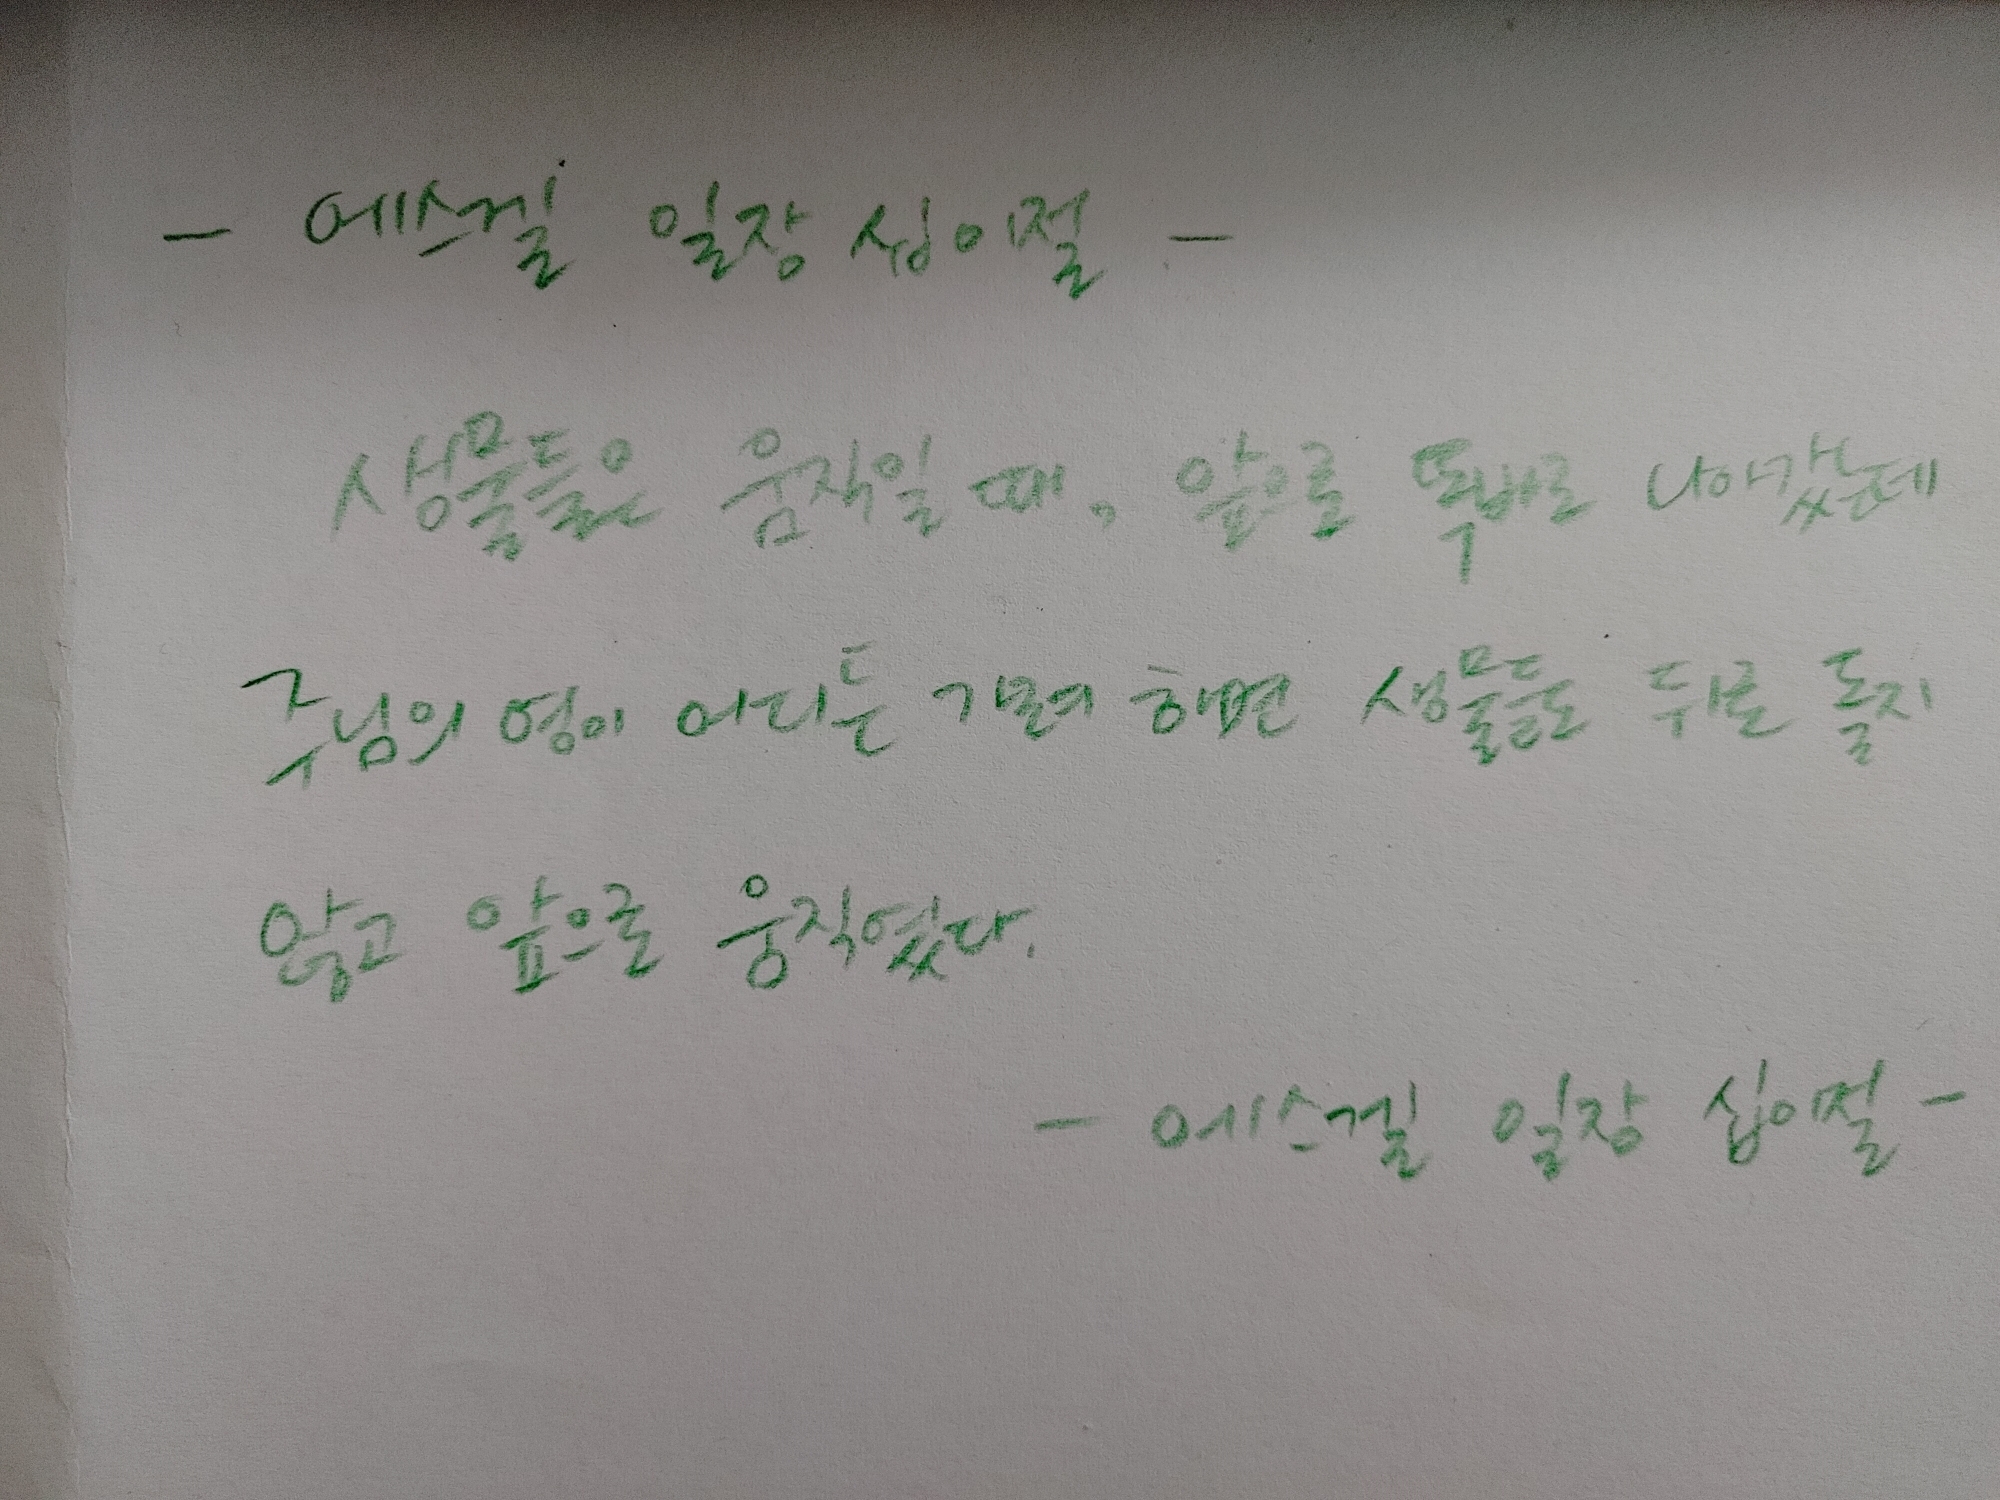 - 에스겔 일장 십이절 -
생물들은 움직일 때, 앞으로 똑바로 나아갔는데
주님의 영이 어디든 가려 하면 생물들도 뒤로 돌지
않고 앞으로 움직였다.
- 에스겔 일장 십이절 -